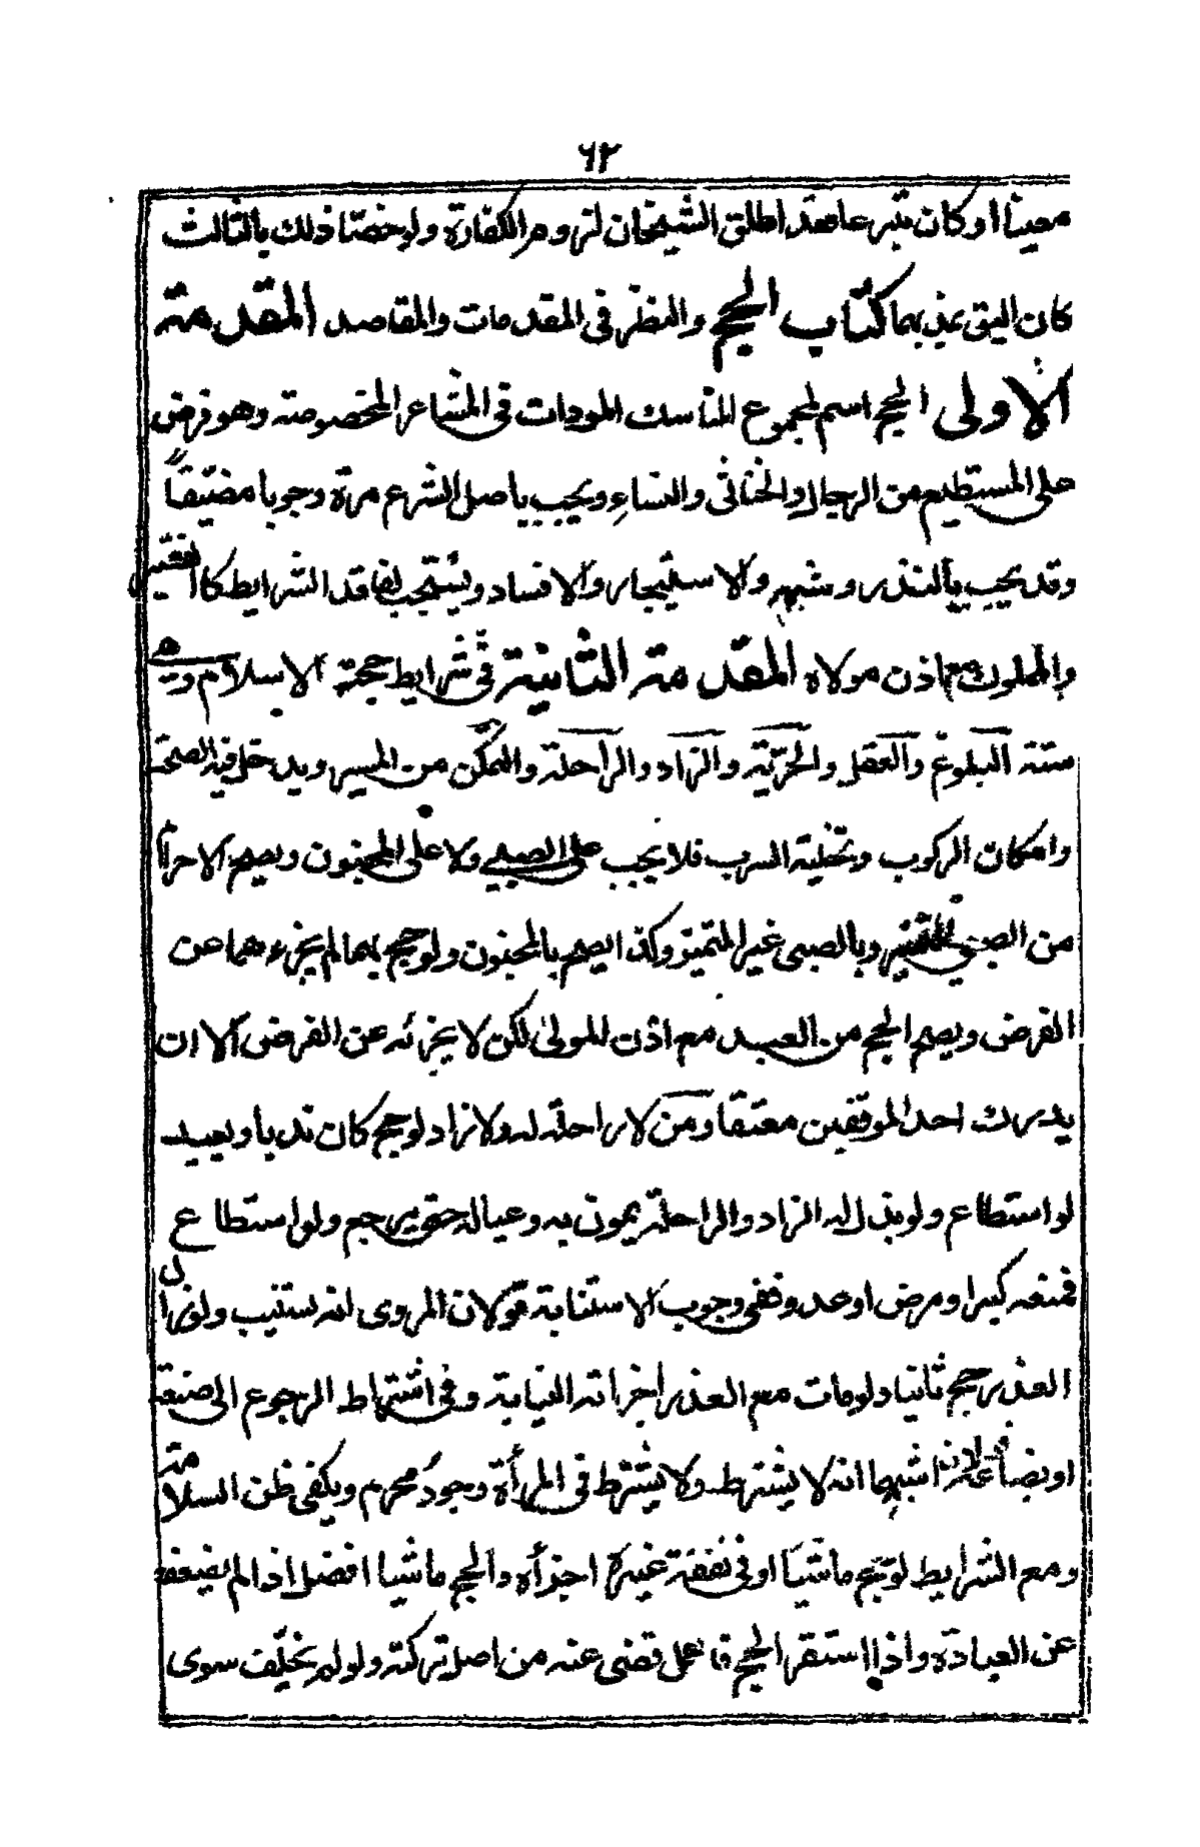 ٦٢
معينا او كان تبرعا فقد اطلق الشيخان لزوم الكفارة ولو خصّا ذلك بالثالث
كان اليق بمذهبهما كتاب الحج والنظر في المقدمات والمقاصد المقدمة
الاولى الحج اسم لمجموع المناسك المودات في المشاعر المخصوصة وهو فرض
على المستطيع من الرجال والخناثى والنساء ويجب باصل الشرع مرة وجوبا مضيّقاً
وقد يجب بالنذر وشبهه والاستيجار والافساد ويستحب لفاقد الشرايط كالفقير
والمملوك مع اذن مولاه المقدمة الثانية في شرايط حجة الاسلام وهي
ستة البلوغ والعقل والحرّية والزاد والراحلة والتمكّن من المسير ويدخل فيه الصحة
وامكان الركوب وتخلية السرب فلا يجب على الصبي ولا على المجنون ويصح الاحرام
من الصبي المميّز وبالصبى غير المتميز وكذا يصح بالمجنون ولو حج بهما لم يجزءهما عن
الفرض ويصح الحج من العبد مع اذن المولى لكن لا يجزئه عن الفرض الا ان
يدرك احد الموقفين معتقا ومن لا راحلة له ولا زاد لو حج كان ندبا ويعيد
لو استطاع ولو بذل له الزاد والراحلة يمون به وعياله حتى يرجع ولو استطاع
فمنعه كبر او مرض او عدو ففي وجوب الاستنابة قولان المروى انه يستنيب ولو زال
العذر حج ثانيا ولو مات مع العذر اجزاته النيابة وفي اشتراط الرجوع الى صنعة
او بضاعة قولان اشبههما انه لا يشترط ولا يشترط في المرأة وجود محرم ويكفى ظن السلامة
ومع الشرايط لو حج ماشيا او في نفقة غيره اجزأه والحج ماشيا افضل اذا لم يضعفه
عن العبادة واذا استقر الحج فاهمل قضى عنه من اصل تركته ولو لم يخلّف سوى